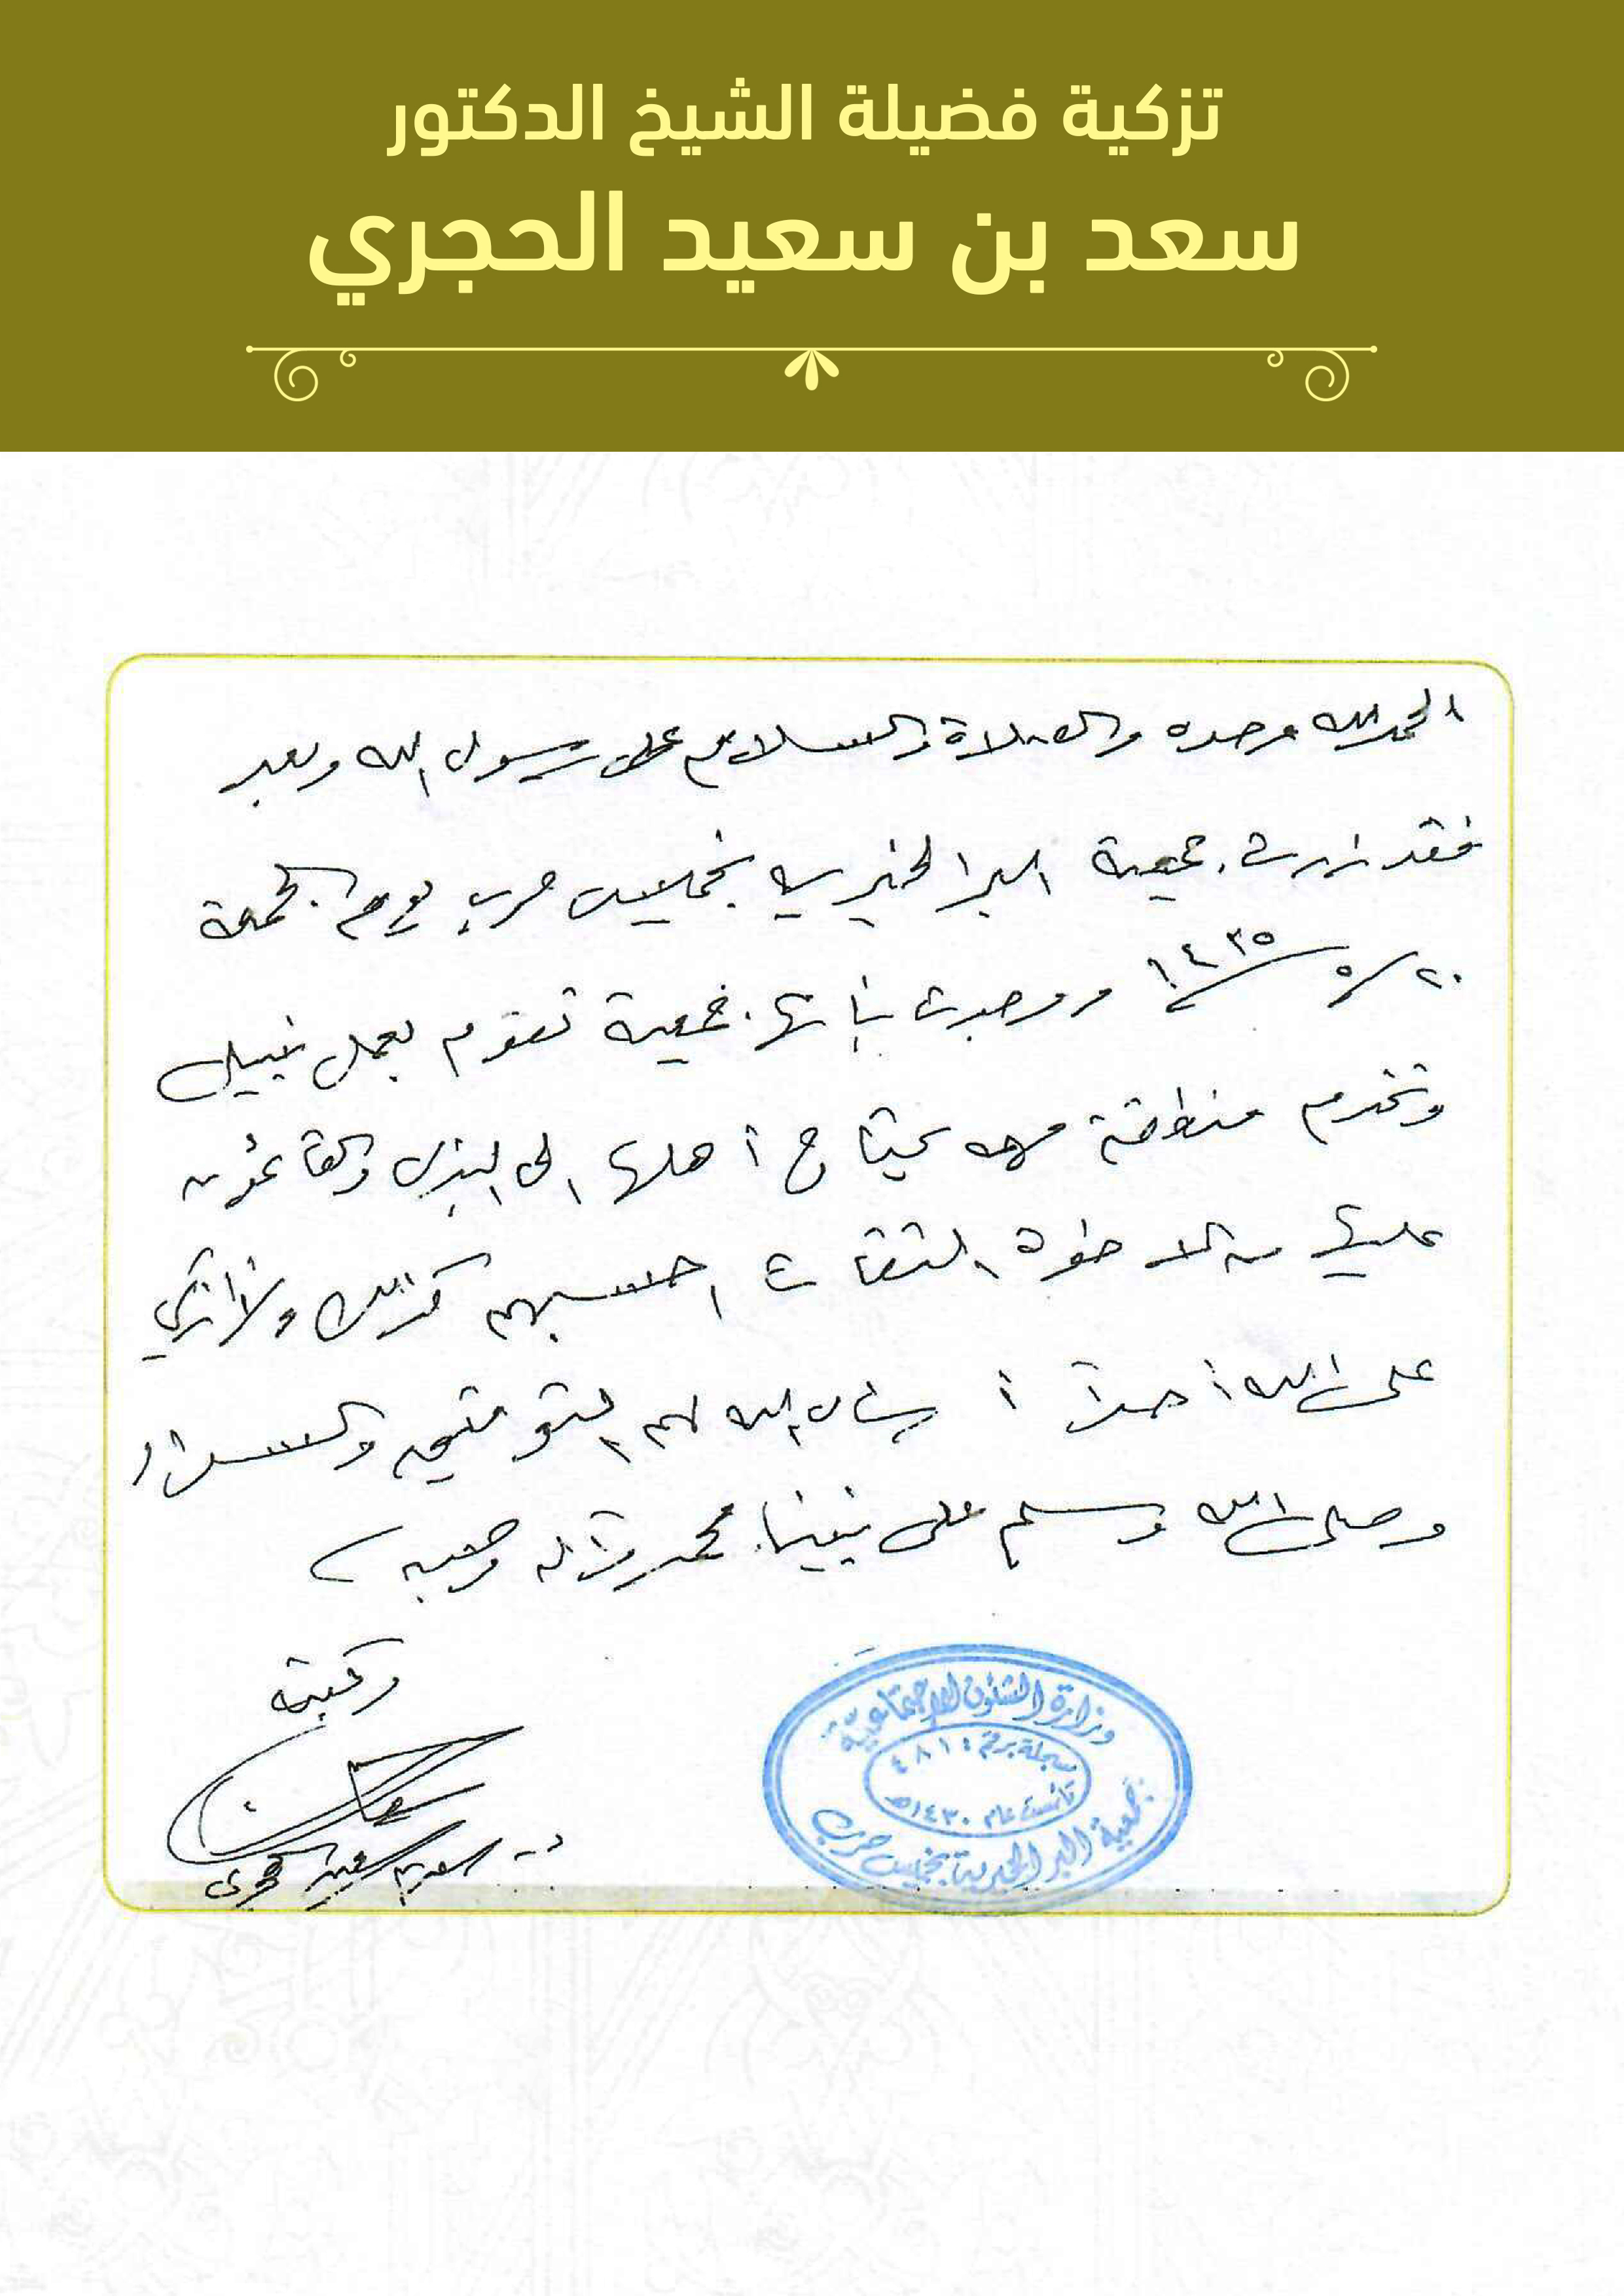 تزكية فضيلة الشيخ الدكتور
سعد بن سعيد الحجري
الحمد لله وحده والصلاة والسلام على رسول الله وبعد
فقد زرت جمعية البر الخيرية بخميس حرب يوم الجمعة
٢٠/٥/١٤٣٥هـ ووجدت بأنها جمعية تقوم بعمل نبيل
وتخدم منطقة يحتاج أهلها إلى البذل والقائمون
عليها من الاخوة الثقات احسبهم كذلك ولا ازكي
على الله أحداً أسأل الله لهم التوفيق والسداد
وصلى الله وسلم على نبينا محمد وآله وصحبه
وكتبه
د. سعد بن سعيد الحجري
وزارة الشئون الاجتماعية
مسجلة برقم: ٤٨١
تأسست عام ١٤٣٠هـ
جمعية البر الخيرية بخميس حرب